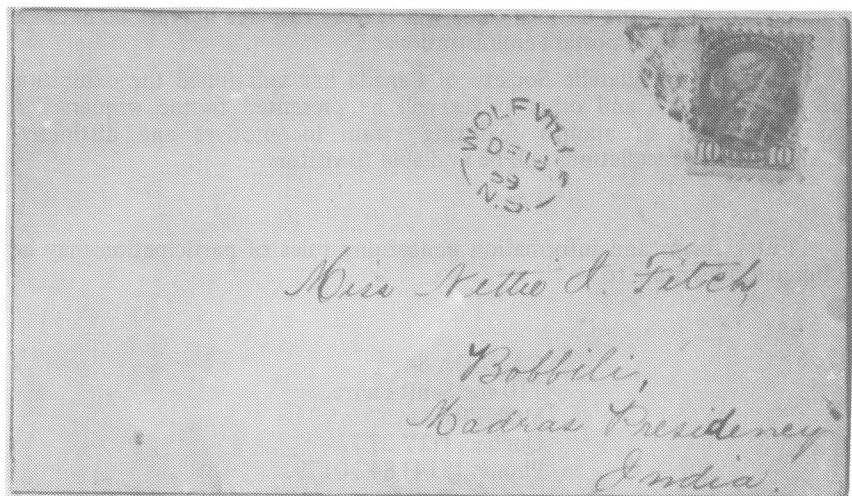 WOLFVILL
DE 13
89
N.S.
10 10
Miss Nettie I. Fitch,
Bobbili,
Madras Presidency
India.